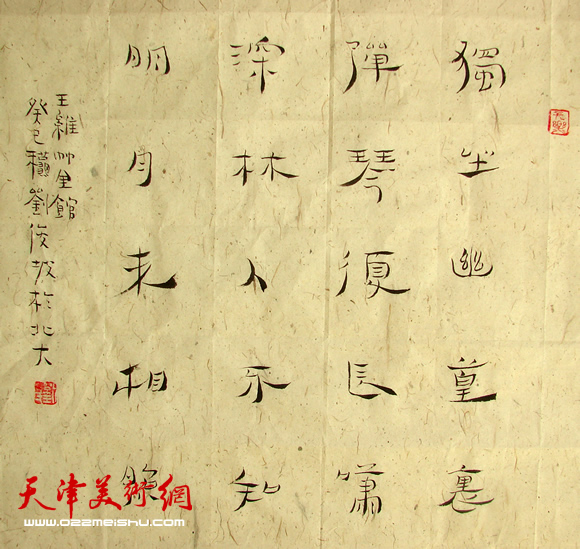 獨坐幽篁裏
彈琴復長嘯
深林人不知
明月來相照
王維竹里館
癸巳穐劉俊於北大
天津美術網
www.022meishu.com